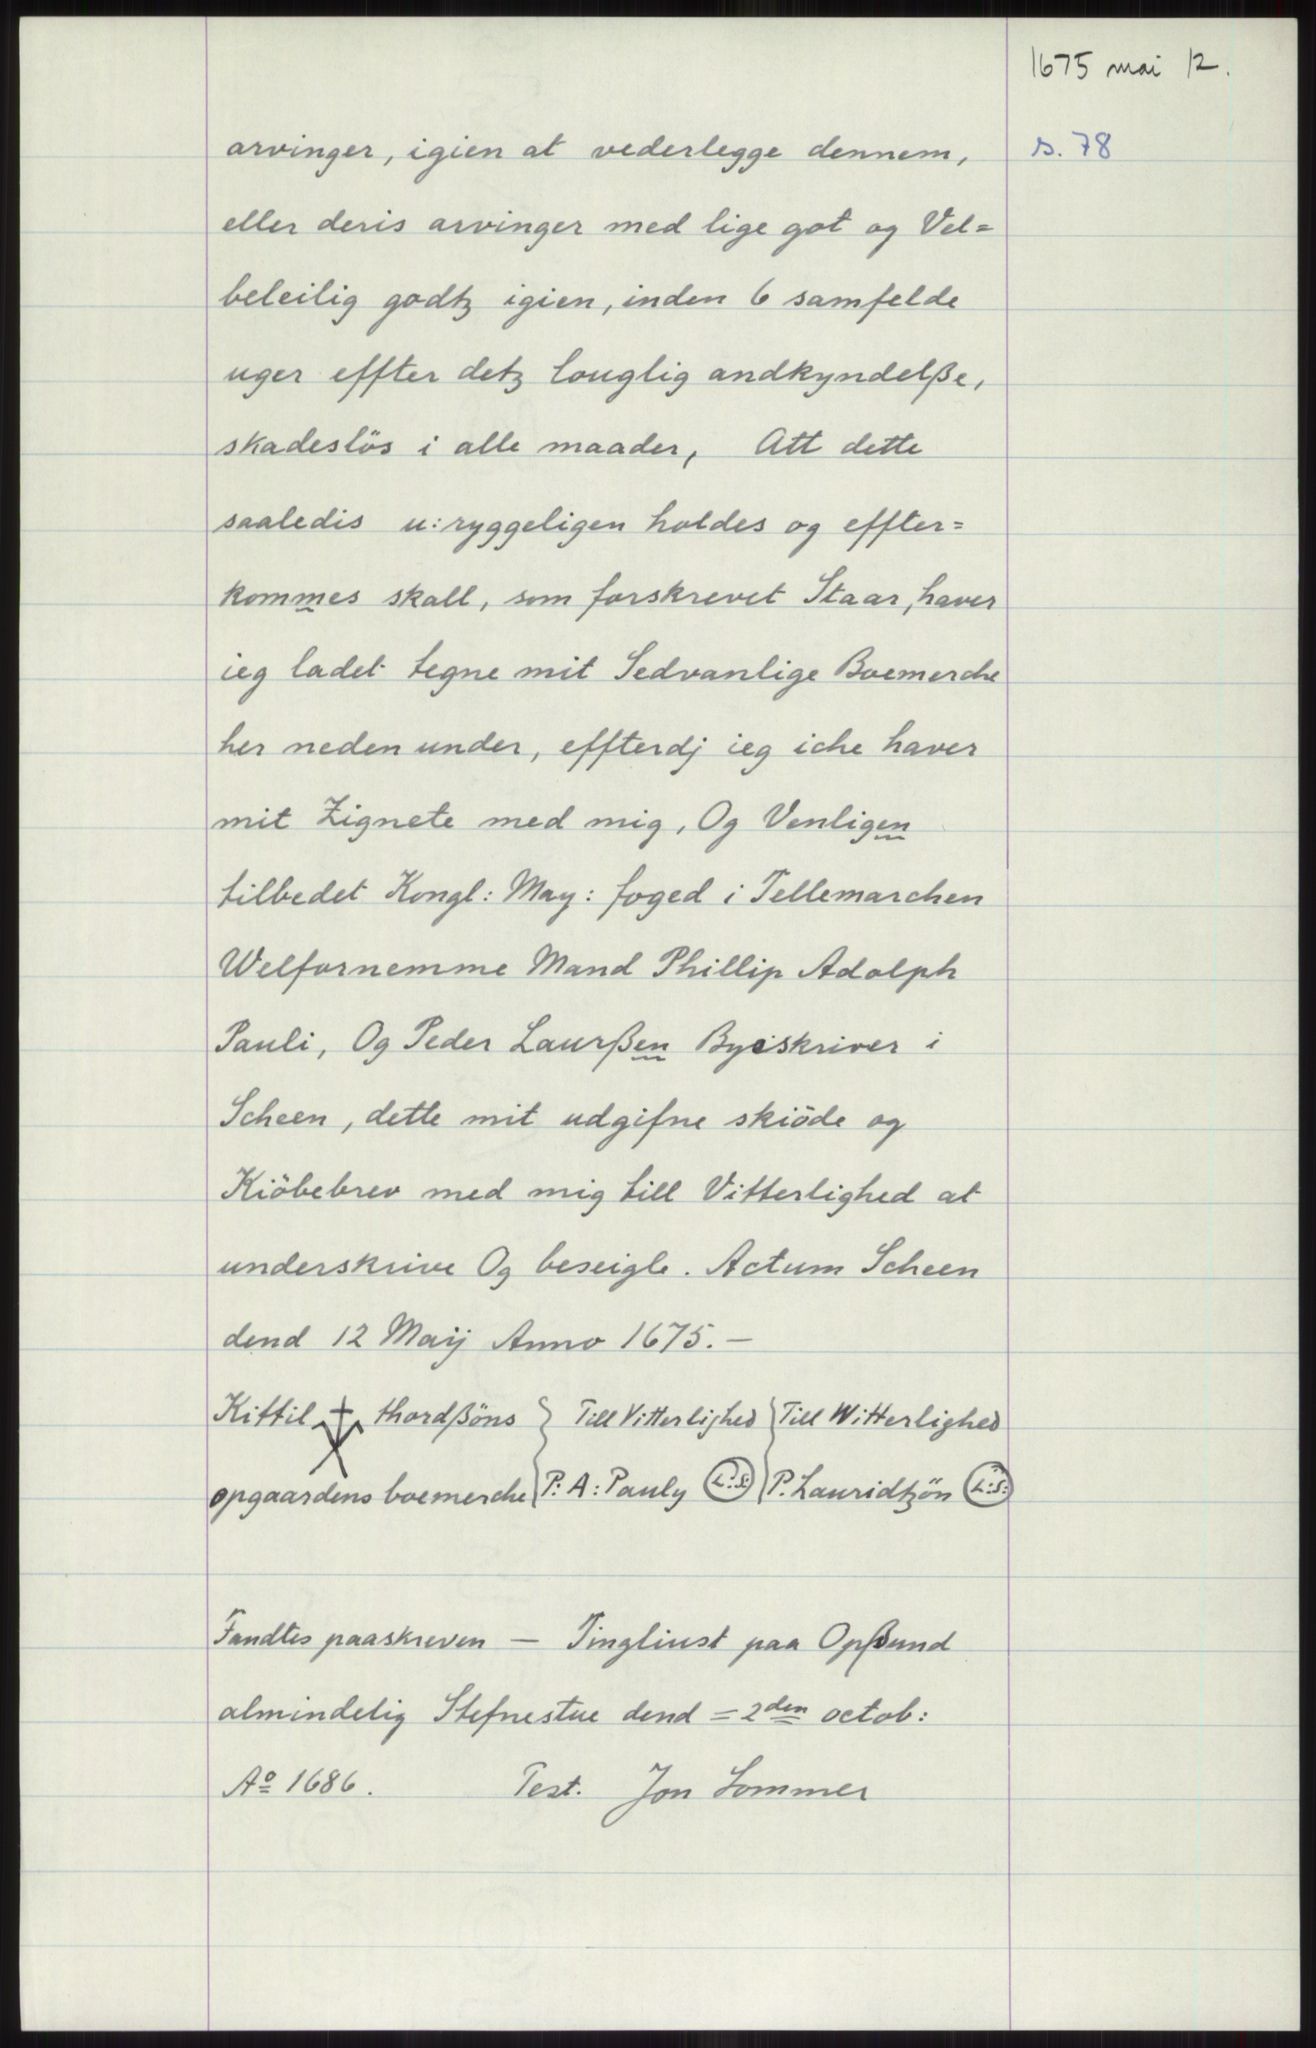 1675 mai 12.
s. 78
arvinger, igien at vederlegge dennem,
eller deris arvinger med lige got og Vel=
beleilig godtz igien, inden 6 samfelde
uger effter detz louglig andkyndelße,
skadeslös i alle maader, Att dette
saaledis u:ryggeligen holdes og effter=
kommes skall, som forskrevet Staar, haver
ieg ladet tegne mit Sedvanlige Boemerche
her neden under, effterdj ieg iche haver
mit Zignete med mig, Og Venligen
tilbedet Kongl: May: foged i Tellemarchen
Welfornemme Mand Phillip Adolph
Pauli, Og Peder Laurßen Byeskriver i
Scheen, dette mit udgifne skiöde og
Kiöbebrev med mig till Vitterlighed at
underskrive Og beseigle. Actum Scheen
dend 12 Maij Anno 1675.—
Kittil thordßöns } Till Vitterlighed } Till Witterlighed
opgaardens boemerche } P: A: Pauly L:S: } P. Lauridtzön L:S:
Fandtes paaskreven — Tingliust paa Opßund
almindelig Stefnestue dend = 2den octob:
Ao 1686. Test. Jon Sommer